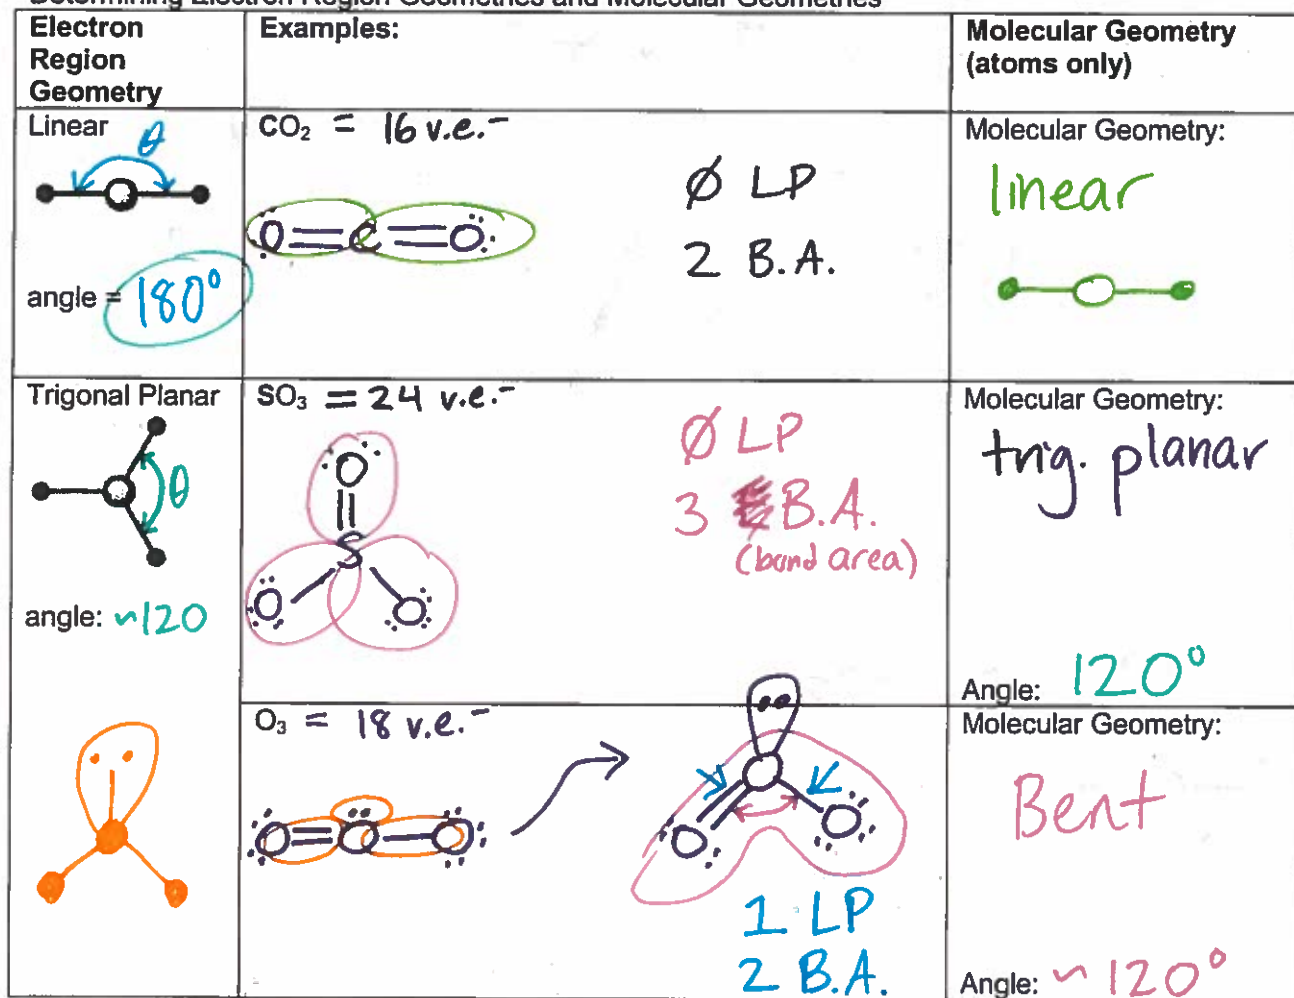 Determining Electron Region Geometries and Molecular Geometries
Electron
Region
Geometry
Examples:
Molecular Geometry
(atoms only)
Linear
θ
angle = 180°
CO₂ = 16 v.e.-
O=C=O
Ø LP
2 B.A.
Molecular Geometry:
linear
Trigonal Planar
θ
angle: ~120
SO₃ = 24 v.e.-
O
S
O O
Ø LP
3 B.A.
(bond area)
Molecular Geometry:
trig. planar
Angle: 120°
O₃ = 18 v.e.-
O=O-O
O
O O
1 LP
2 B.A.
Molecular Geometry:
Bent
Angle: ~ 120°